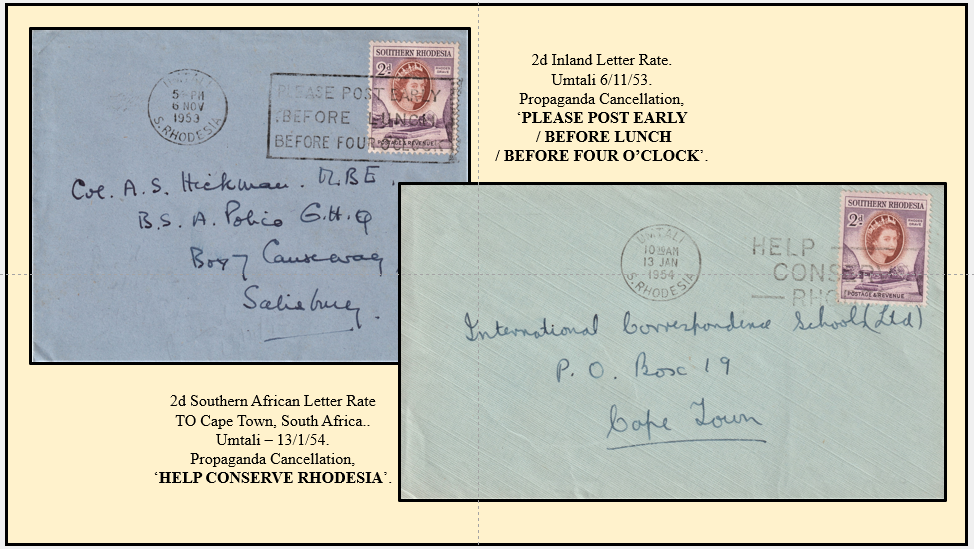 SOUTHERN RHODESIA
2d
POSTAGE & REVENUE
UMTALI
5 - PM
6 NOV
1953
S. RHODESIA
PLEASE POST EARLY
BEFORE LUNCH
BEFORE FOUR O'CLOCK
Col. A. S. Hickman. M.B.E.
B.S. A. Police G.H.Q
Box 7 Causeway
Salisbury.
2d Inland Letter Rate.
Umtali 6/11/53.
Propaganda Cancellation,
‘PLEASE POST EARLY
/ BEFORE LUNCH
/ BEFORE FOUR O’CLOCK’.
SOUTHERN RHODESIA
2d
POSTAGE & REVENUE
UMTALI
10 AM
13 JAN
1954
S. RHODESIA
HELP
CONSER
RHO
International Correspondence School (Ltd)
P. O. Box 19
Cape Town
2d Southern African Letter Rate
TO Cape Town, South Africa..
Umtali – 13/1/54.
Propaganda Cancellation,
‘HELP CONSERVE RHODESIA’.